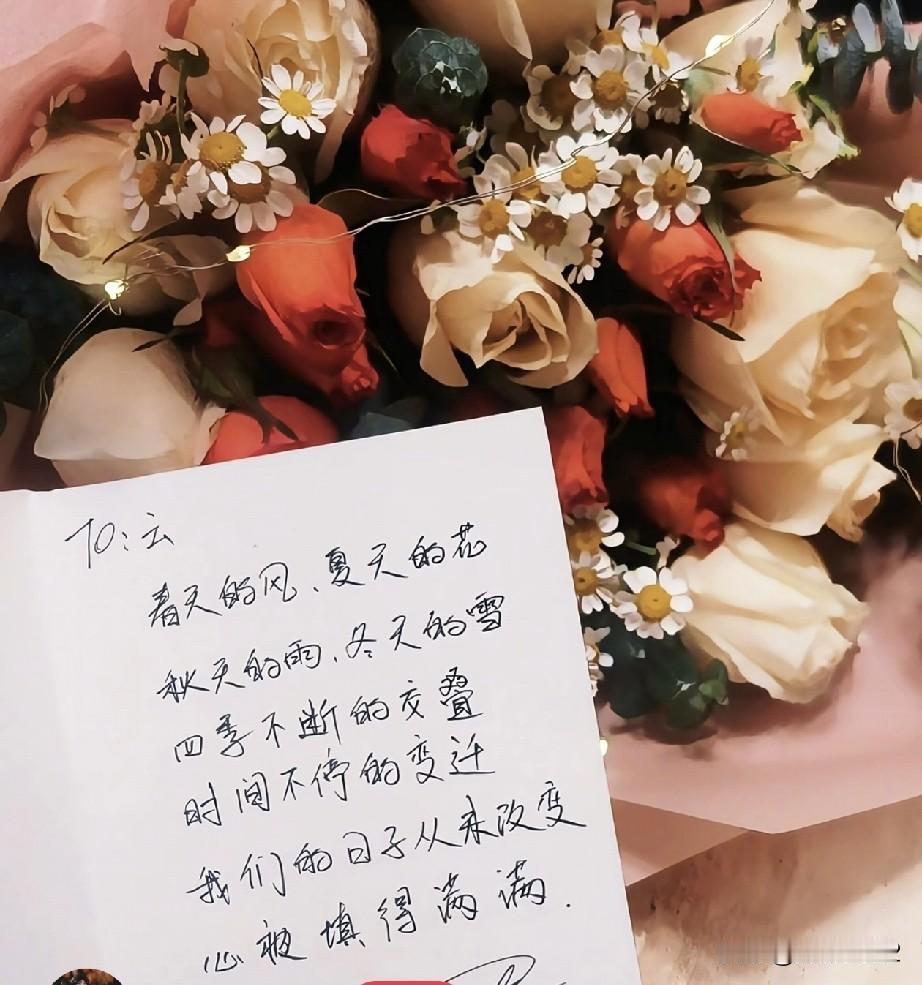 TO:云
春天的风、夏天的花
秋天的雨、冬天的雪
四季不断的交叠
时间不停的变迁
我们的日子从来改变
心被填得满满.